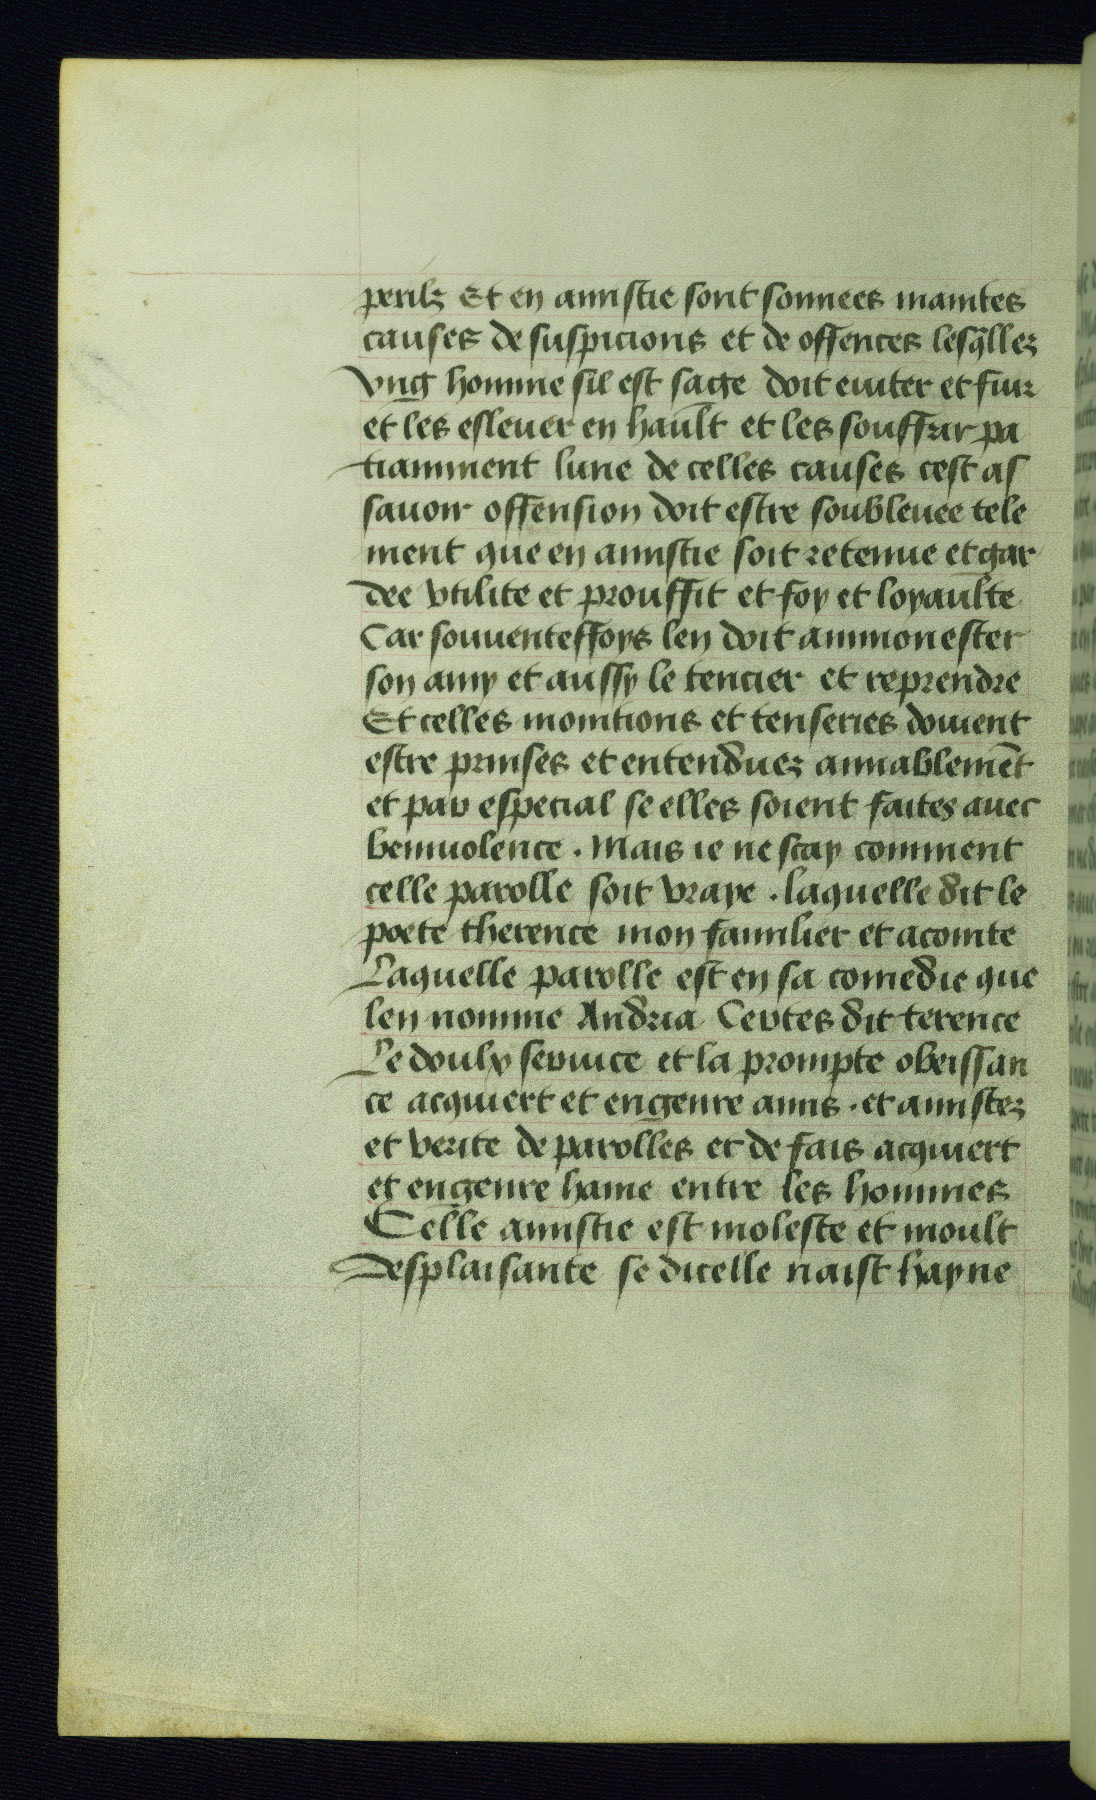 perilz Et en amistie sont sonnees maintes
causes de suspicions et de offences lesq̄llez
vng homme sil est sage doit euiter et fuir
et les esleuer en hault et les souffrir pa
tiamment lune de celles causes cest as
sauoir offension doit estre soubleuee tele
ment que en amistie soit retenue et gar
dee vtilite et prouffit et foy et loyaulte
Car souuenteffoys len doit ammonester
son amy et aussy le tencier et reprendre
Et celles monitions et tenseries doiuent
estre prinses et entenduez amiablemēt
et par especial se elles soient faites auec
beniuolence . Mais ie ne scay comment
celle parolle soit vraye . laquelle dit le
poete therence mon familier et acointe
Laquelle parolle est en sa comedie que
len nomme Andria Certes dit terence
Le doulx seruice et la prompte obeissan
ce acquiert et engenre amis . et amistez
et verite de parolles et de fais acquiert
et engenre haine entre les hommes
Celle amistie est moleste et moult
desplaisante se dicelle naist hayne